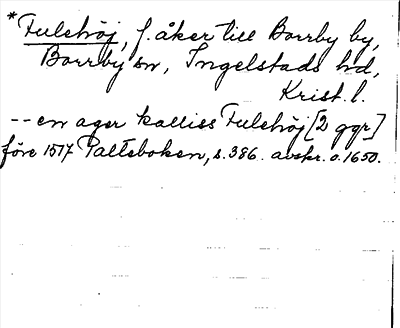 *Fulshöj, f. åker till Borrby by,
Borrby sn, Ingelstads hd,
Krist. l.
-- en ager kalliss Fulshöj [2 ggr]
före 1517 Palteboken, s. 386. avskr. o. 1650.